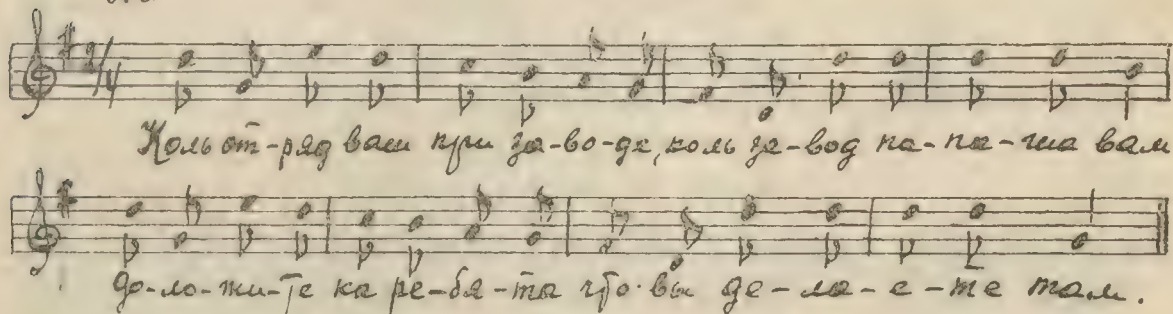 2/4
Коль от-ряд ваш при за-во-де, коль за-вод па-па-ша вам
до-ло-жи-те ка ре-бя-та что вы де-ла-е-те там.